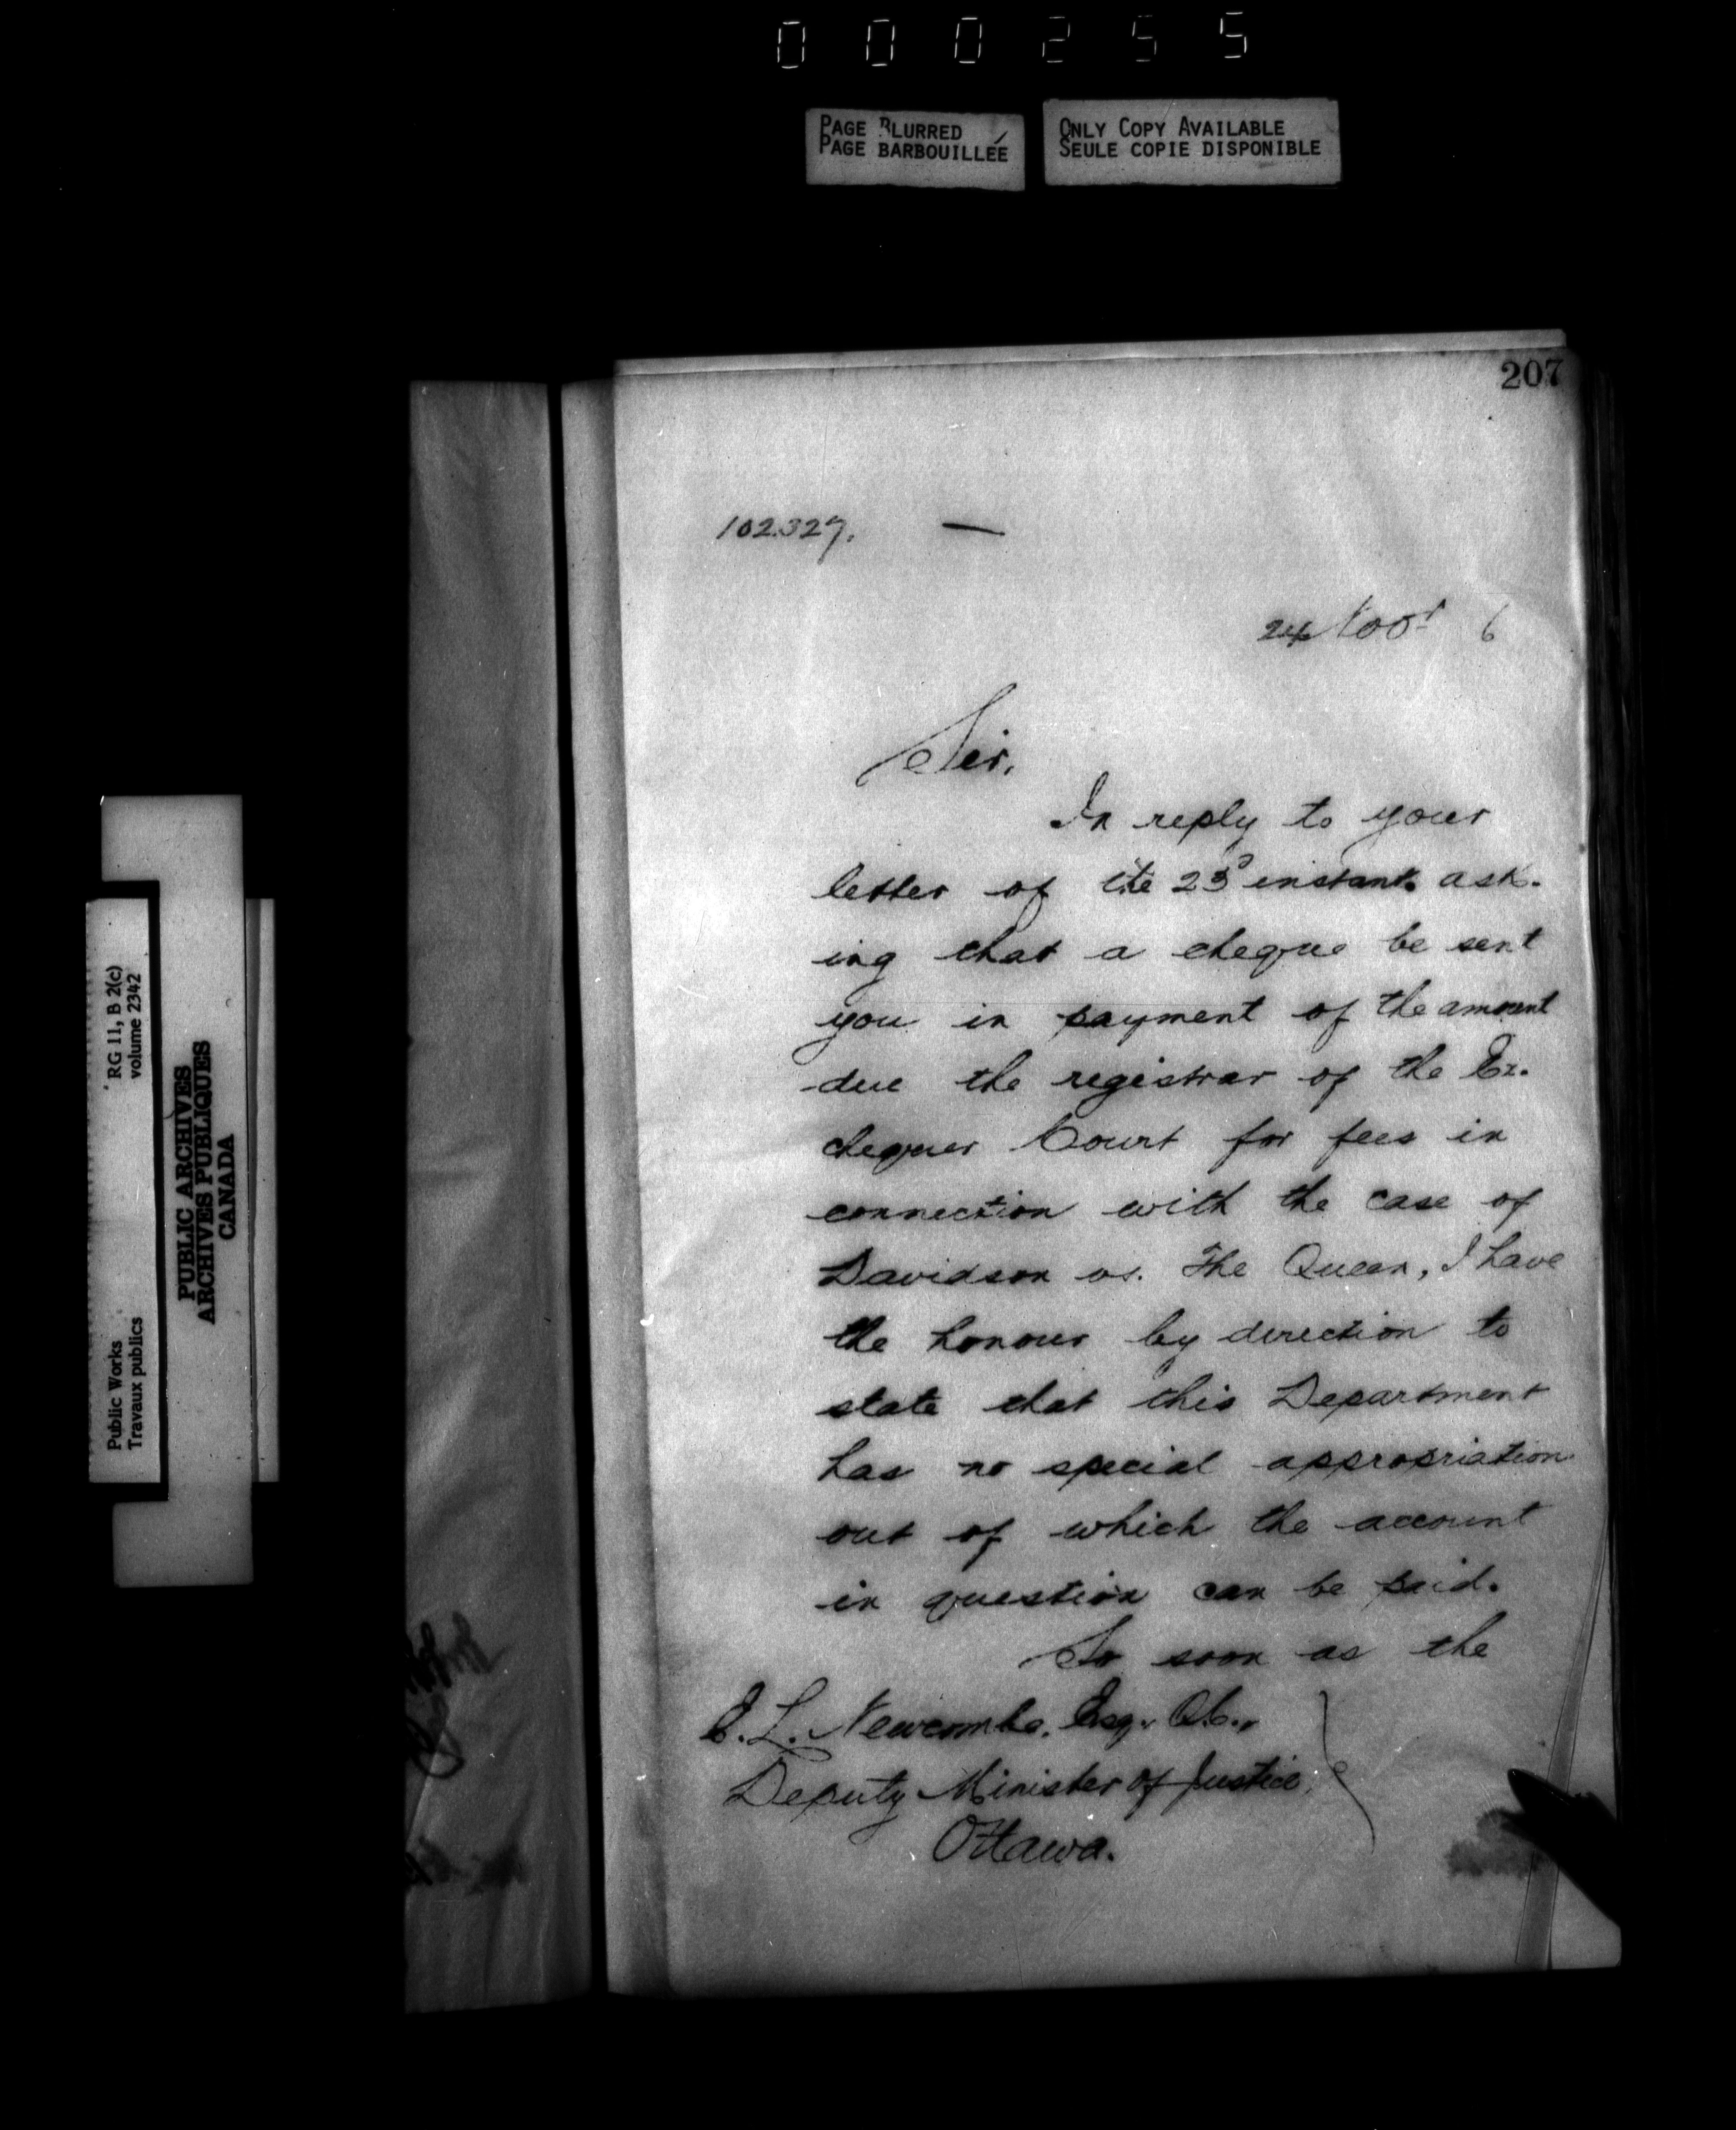 000255
PAGE BLURRED
PAGE BARBOUILLÉE
ONLY COPY AVAILABLE
SEULE COPIE DISPONIBLE
207
102.327.
24 Novr 6
Sir,
In reply to your
letter of the 23d instant ask-
ing that a cheque be sent
you in payment of the amount
due the registrar of the Ex-
chequer Court for fees in
connection with the case of
Davidson vs. The Queen, I have
the honour by direction to
state that this Department
has no special appropriation
out of which the account
in question can be paid.
So soon as the
E. L. Newcombe, Esq., Q.C.,
Deputy Minister of Justice,
Ottawa.
RG 11, B 2(c)
volume 2342
Public Works
Travaux publics
PUBLIC ARCHIVES
ARCHIVES PUBLIQUES
CANADA